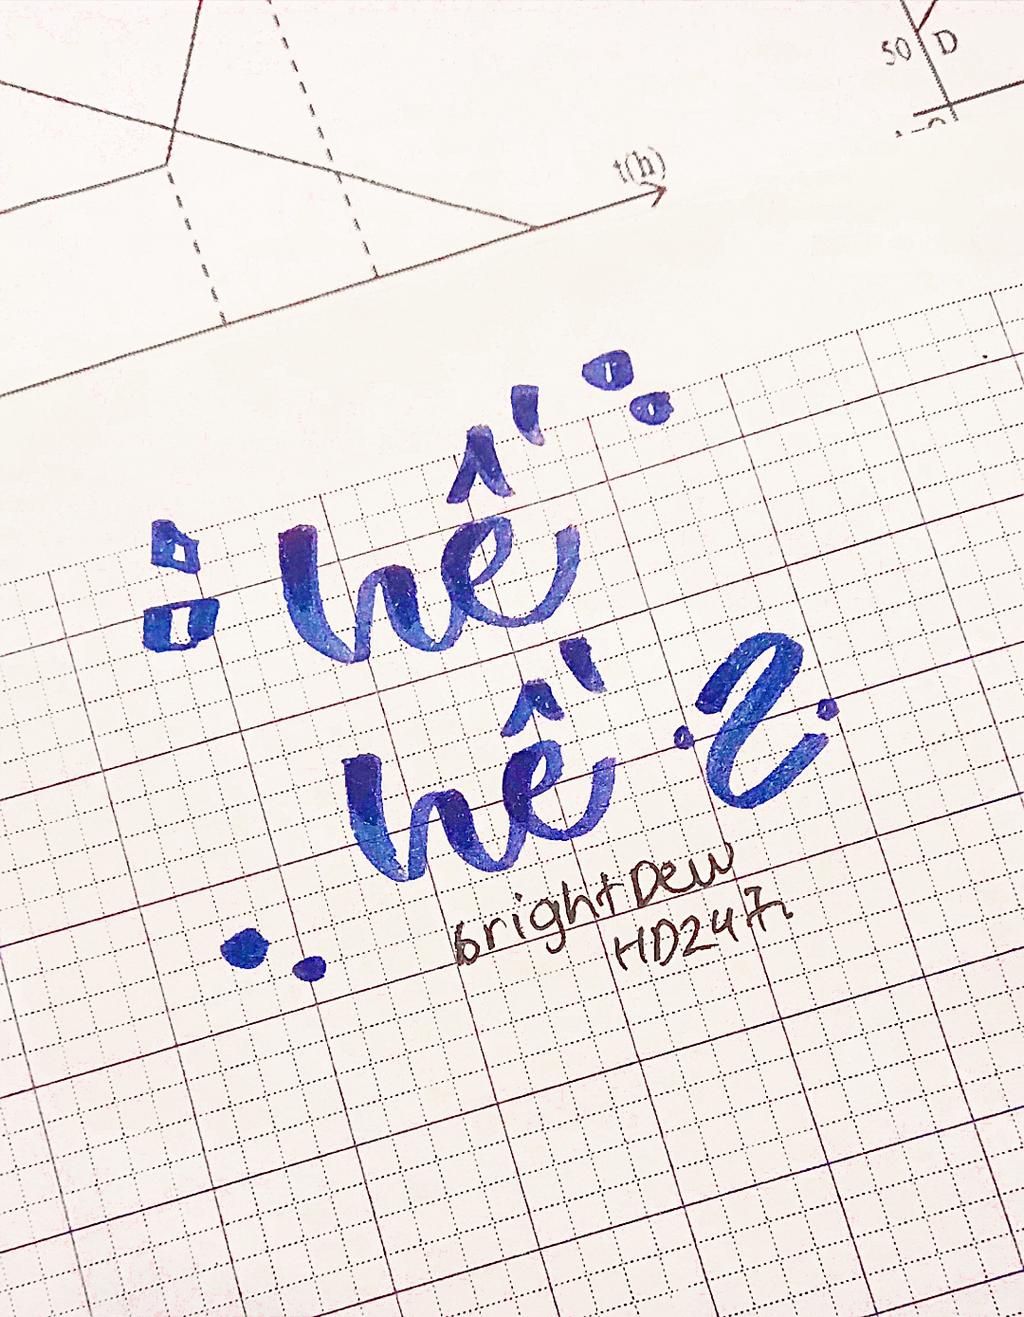 50 D
t(h)
hề
hề 2
brightDew
HD247